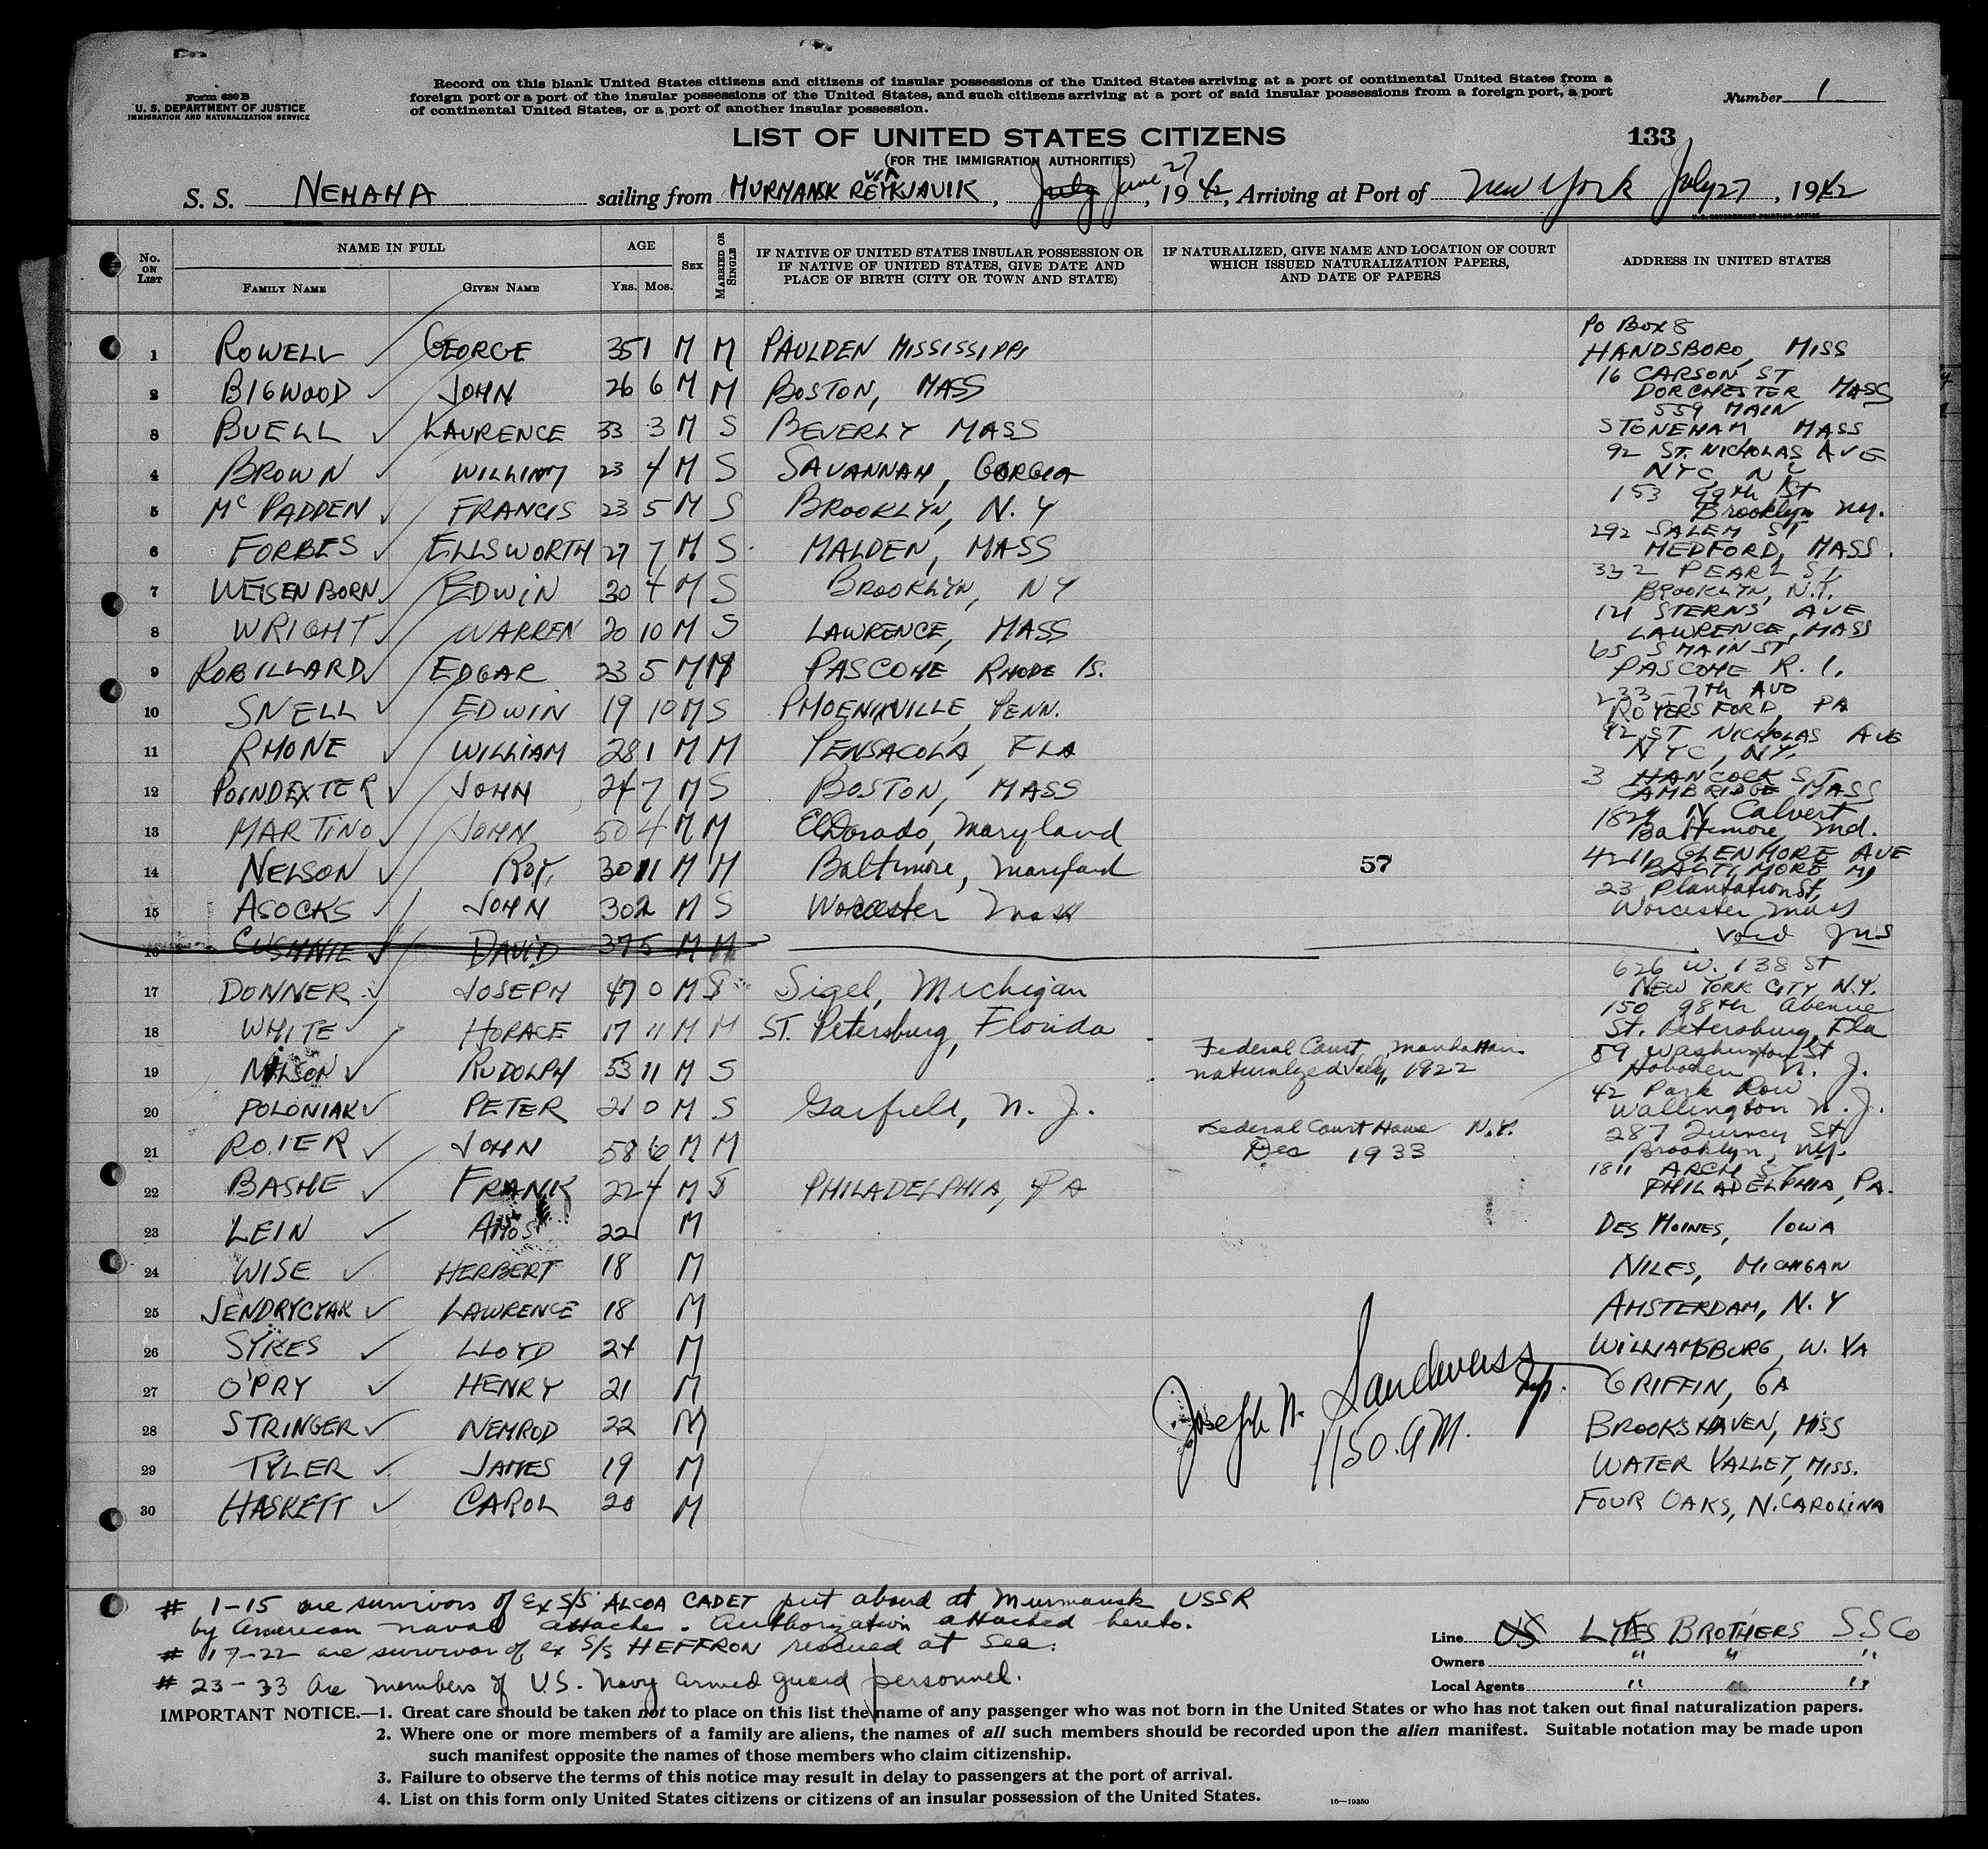 Form 630 B
U. S. DEPARTMENT OF JUSTICE
IMMIGRATION AND NATURALIZATION SERVICE
Record on this blank United States citizens and citizens of insular possessions of the United States arriving at a port of continental United States from a
foreign port or a port of the insular possessions of the United States, and such citizens arriving at a port of said insular possessions from a foreign port, a port
of continental United States, or a port of another insular possession.
Number 1
LIST OF UNITED STATES CITIZENS
133
(FOR THE IMMIGRATION AUTHORITIES)
S. S. NEMAHA sailing from MURMANSK VIA REYKJAVIK, July June 27, 1942, Arriving at Port of New York July 27, 1942
U.S. GOVERNMENT PRINTING OFFICE
No. ON LIST
NAME IN FULL
FAMILY NAME
GIVEN NAME
AGE
YRS. MOS.
SEX
MARRIED OR SINGLE
IF NATIVE OF UNITED STATES INSULAR POSSESSION OR
IF NATIVE OF UNITED STATES, GIVE DATE AND
PLACE OF BIRTH (CITY OR TOWN AND STATE)
IF NATURALIZED, GIVE NAME AND LOCATION OF COURT
WHICH ISSUED NATURALIZATION PAPERS,
AND DATE OF PAPERS
ADDRESS IN UNITED STATES
1 ROWELL GEORGE 35 1 M M PAULDEN MISSISSIPPI PO BOX 8 HANDSBORO, MISS
2 BIGWOOD JOHN 26 6 M M BOSTON, MASS 16 CARSON ST DORCHESTER MASS
3 BUELL LAURENCE 33 3 M S BEVERLY MASS 559 MAIN STONEHAM MASS
4 BROWN WILLIAM 23 4 M S SAVANNAH, GEORGIA 92 ST. NICHOLAS AVE NYC, NY
5 McPADDEN FRANCIS 23 5 M S BROOKLYN, N.Y 153 99th St Brooklyn Ny.
6 FORBES ELLSWORTH 27 7 M S MALDEN, MASS 292 SALEM ST MEDFORD, MASS.
7 WEISENBORN EDWIN 30 4 M S BROOKLYN, NY 332 PEARL ST. BROOKLYN, N.Y.
8 WRIGHT WARREN 20 10 M S LAWRENCE, MASS 121 STERNS AVE LAWRENCE, MASS
9 ROBILLARD EDGAR 23 5 M M PASCOHE RHODE IS. 65 S MAIN ST PASCOHE R.I.
10 SNELL EDWIN 19 10 M S PHOENIXVILLE, PENN. 233 - 7th AVO ROYERSFORD, PA
11 RHONE WILLIAM 28 1 M M PENSACOLA, FLA 92 ST NICHOLAS AVE NYC, NY.
12 POINDEXTER JOHN 24 7 M S BOSTON, MASS 3 HANCOCK ST CAMBRIDGE MASS
13 MARTINO JOHN 50 4 M M ElDorado, Maryland N Calvert Baltimore, Md.
14 NELSON ROY 30 11 M M Baltimore, Maryland 57 4211 GLENMORE AVE BALTIMORE MD
15 ASOCKS JOHN 30 2 M S Worcester Mass 23 Plantation St, Worcester Mass
16 CUSHNIE DAVID 37 5 M M void
17 DONNER JOSEPH 47 0 M S Sigel, Michigan 626 W. 138 St NEW YORK CITY N.Y.
18 WHITE HORACE 17 11 M M ST. Petersburg, Florida 150 98th Avenue St. Petersburg, Fla
19 NILSON RUDOLPH 53 11 M S Federal Court Manhattan naturalized July, 1922 59 Washington St Hoboken N. J.
20 POLONIAK PETER 21 0 M S Garfield, N. J. 42 Park Row Wallington N. J.
21 ROIER JOHN 58 6 M M Federal Court House N.Y. Dec 1933 287 Quincy St Brooklyn, Ny.
22 BASHE FRANK 22 4 M S PHILADELPHIA, PA 1811 ARCH ST PHILADELPHIA, PA.
23 LEIN AMOS 22 M DES MOINES, IOWA
24 WISE HERBERT 18 M NILES, MICHIGAN
25 JENDRYCYAK LAWRENCE 18 M AMSTERDAM, N.Y
26 SYKES LLOYD 24 M WILLIAMSBURG, W. VA
27 O'PRY HENRY 21 M GRIFFIN, GA
28 STRINGER NEMROD 22 M BROOKSHAVEN, MISS
29 TYLER JAMES 19 M WATER VALLEY, MISS.
30 HASKETT CAROL 20 M FOUR OAKS, N. CAROLINA
Joseph N.
1150. AM.
# 1-15 are survivors of Ex S/S ALCOA CADET put aboard at Murmansk USSR
by American naval attache. Authorization attached hereto.
# 17-22 are survivor of ex S/S HEFFRON rescued at sea.
# 23-33 are members of U.S. Navy armed guard personnel.
Line US LYKES BROTHERS SS Co
Owners " " "
Local Agents " " "
IMPORTANT NOTICE.—1. Great care should be taken not to place on this list the name of any passenger who was not born in the United States or who has not taken out final naturalization papers.
2. Where one or more members of a family are aliens, the names of all such members should be recorded upon the alien manifest. Suitable notation may be made upon
such manifest opposite the names of those members who claim citizenship.
3. Failure to observe the terms of this notice may result in delay to passengers at the port of arrival.
4. List on this form only United States citizens or citizens of an insular possession of the United States.
16—19350